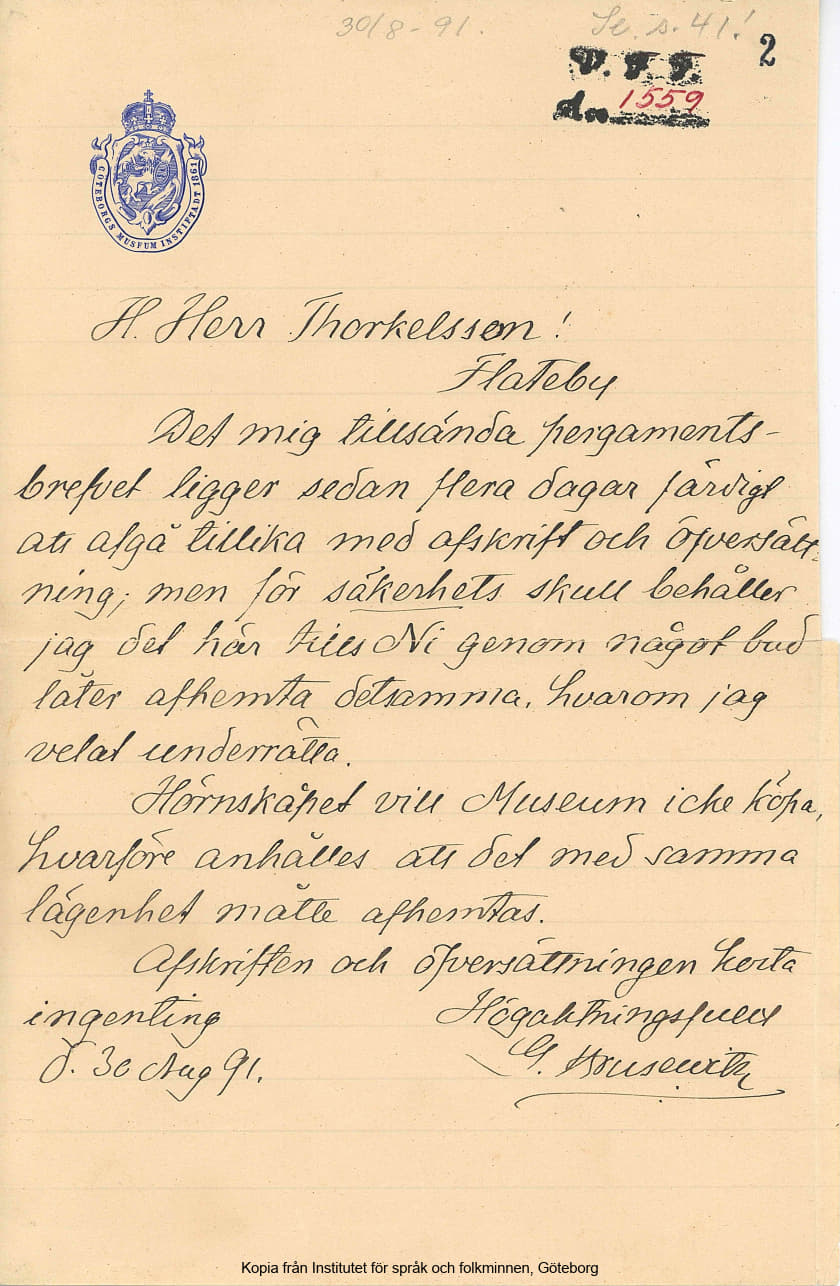 30/8-91.
Se. s. 41!
2
V. F. F.
1559
GÖTEBORGS MUSEUM INSTIFTADT 1861
H. Herr Thorkelsson!
Flateby
Det mig tillsända pergaments-
brefvet ligger sedan flera dagar färdigt
att afgå tillika med afskrift och öfversätt-
ning; men för säkerhets skull behåller
jag det här tills Ni genom något bud
låter afhemta detsamma, hvarom jag
velat underrätta.
Hörnskåpet vill Museum icke köpa,
hvarföre anhålles att det med samma
lägenhet måtte afhemtas.
Afskriften och öfversättningen kosta
ingenting
Högaktningsfullt
d. 30 Aug 91.
G. Brusewitz
Kopia från Institutet för språk och folkminnen, Göteborg